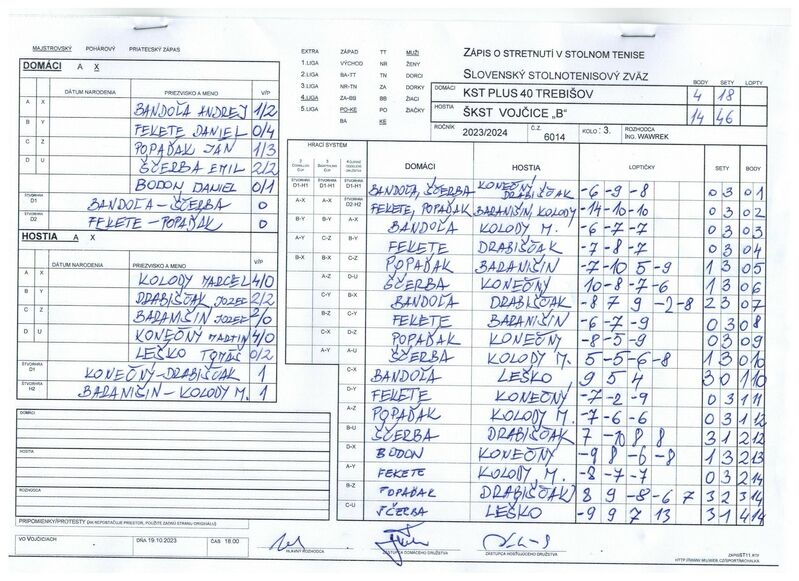 MAJSTROVSKÝ POHÁROVÝ PRIATEĽSKÝ ZÁPAS
DOMÁCI A X
DÁTUM NARODENIA PRIEZVISKO A MENO V/P
A X BANDOĽA ANDREJ 1/2
B Y FEKETE DANIEL 0/4
C Z POPAĎAK JÁN 1/3
D U ŠČERBA EMIL 2/2
BODON DANIEL 0/1
ŠTVORHRA D1 BANDOĽA-ŠČERBA 0
ŠTVORHRA D2 FEKETE-POPAĎAK 0
HOSTIA A X
DÁTUM NARODENIA PRIEZVISKO A MENO V/P
A X KOLODY MARCEL 4/0
B Y DRABIŠČAK JOZEF 2/2
C Z BARANIŠIN JOZEF 2/0
D U KONEČNÝ MARTIN 4/0
LEŠKO TOMÁŠ 0/2
ŠTVORHRA D1 KONEČNÝ-DRABIŠČAK 1
ŠTVORHRA H2 BARANIŠIN-KOLODY M. 1
DOMÁCI
HOSTIA
ROZHODCA
PRIPOMIENKY/PROTESTY (AK NEPOSTAČUJE PRIESTOR, POUŽITE ZADNÚ STRANU ORIGINÁLU)
VO VOJČICIACH DŇA 19.10.2023 ČAS 18.00
HLAVNÝ ROZHODCA ZÁSTUPCA DOMÁCEHO DRUŽSTVA ZÁSTUPCA HOSŤUJÚCEHO DRUŽSTVA
EXTRA ZÁPAD TT MUŽI
1.LIGA VÝCHOD NR ŽENY
2.LIGA BA-TT TN DORCI
3.LIGA NR-TN ZA DORKY
4.LIGA ZA-BB BB ŽIACI
5.LIGA PO-KE PO ŽIAČKY
BA KE
ZÁPIS O STRETNUTÍ V STOLNOM TENISE
SLOVENSKÝ STOLNOTENISOVÝ ZVÄZ
BODY SETY LOPTY
DOMÁCI KST PLUS 40 TREBIŠOV 4 18
HOSTIA ŠKST VOJČICE „B" 14 46
ROČNÍK 2023/2024 Č.Z. 6014 KOLO: 3. ROZHODCA ING. WAWREK
HRACÍ SYSTÉM
DOMÁCI HOSTIA LOPTIČKY SETY BODY
ŠTVORHRA D1-H1 ŠTVORHRA D1-H1 ŠTVORHRA D1-H1 BANDOĽA, ŠČERBA KONEČNÝ DRABIŠČAK -6 -9 -8 0 3 0 1
A-X A-X ŠTVORHRA D2-H2 FEKETE, POPAĎAK BARANIŠIN, KOLODY -14 -10 -10 0 3 0 2
B-Y B-Y A-X BANDOĽA KOLODY M. -6 -7 -7 0 3 0 3
A-Y C-Z B-Y FEKETE DRABIŠČAK -7 -8 -7 0 3 0 4
B-X B-X C-Z POPAĎAK BARANIŠIN -7 -10 5 -9 1 3 0 5
A-Z D-U ŠČERBA KONEČNÝ 10 -8 -7 -6 1 3 0 6
C-Y B-X BANDOĽA DRABIŠČAK -8 7 9 -2 -8 2 3 0 7
B-Z C-Y FEKETE BARANIŠIN -6 -7 -9 0 3 0 8
C-X D-Z POPAĎAK KONEČNÝ -8 -5 -9 0 3 0 9
A-Y A-U ŠČERBA KOLODY M. 5 -5 -6 -8 1 3 0 10
C-X BANDOĽA LEŠKO 9 5 4 3 0 1 10
D-Y FEKETE KONEČNÝ -7 -2 -9 0 3 1 11
A-Z POPAĎAK KOLODY M. -7 -6 -6 0 3 1 12
B-U ŠČERBA DRABIŠČAK 7 -10 8 8 3 1 2 12
D-X BODON KONEČNÝ -9 8 -6 -8 1 3 2 13
A-Y FEKETE KOLODY, M. -8 -7 -7 0 3 2 14
B-Z POPAĎAK DRABIŠČAK 8 9 -8 -6 7 3 2 3 14
C-U ŠČERBA LEŠKO -9 9 7 13 3 1 4 14
ZAPISST11.RTF
HTTP://WWW.MUWEB.CZ/SPORT/MICHALKA